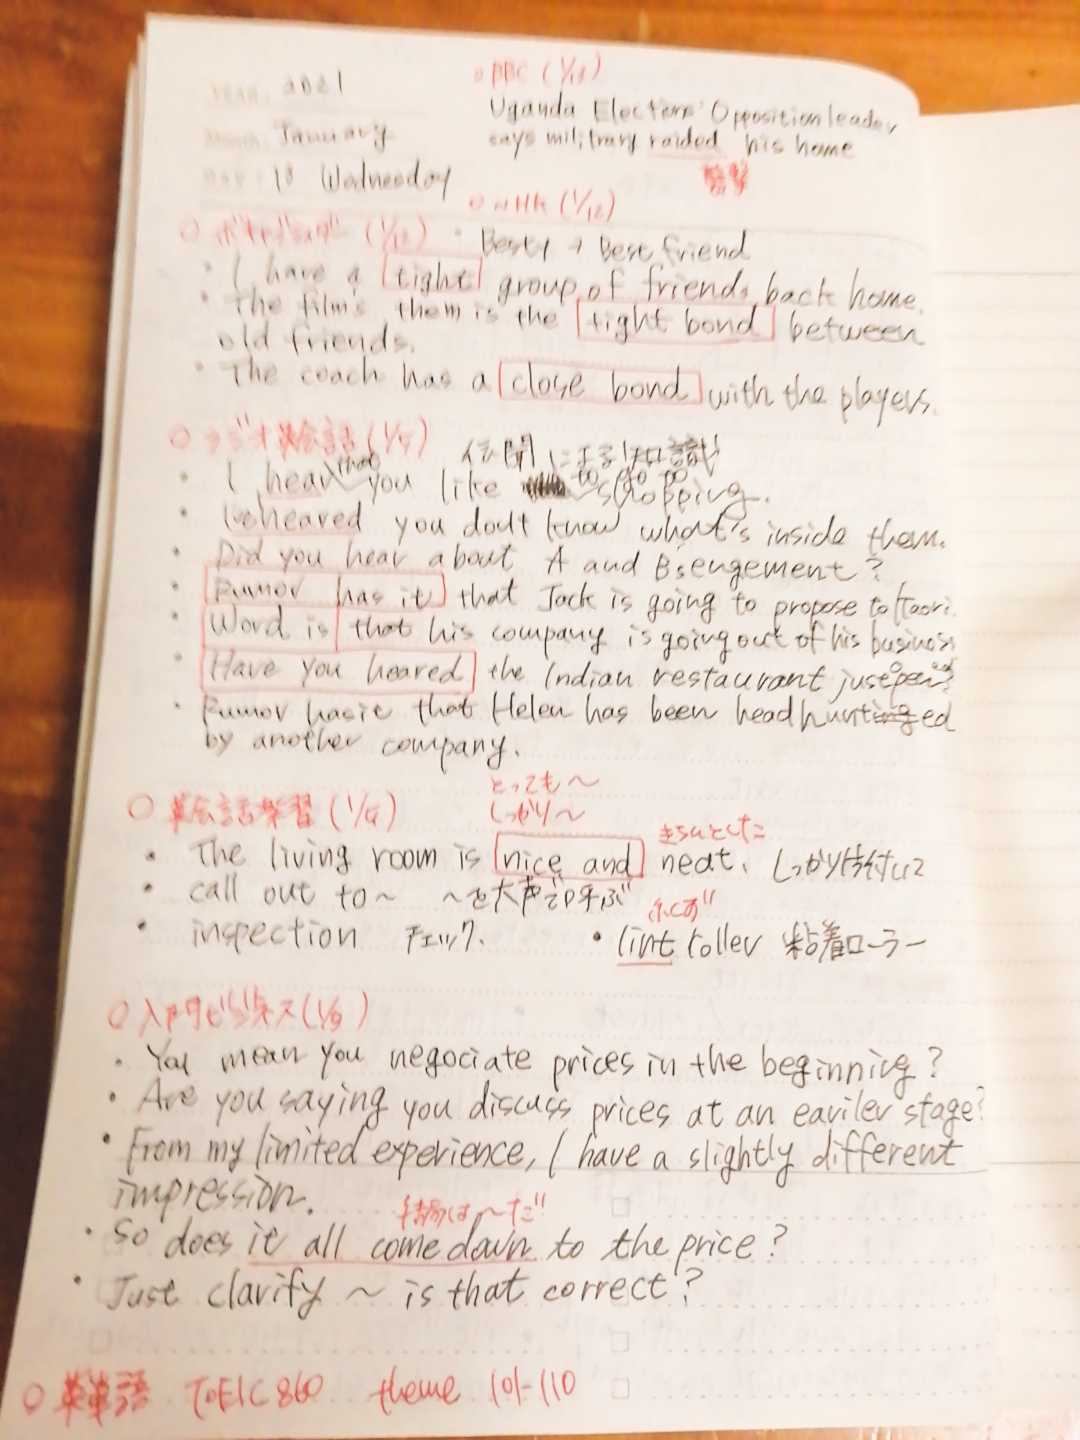 YEAR. 2021
Month. January
DAY. 13 Wednesday
○ BBC (1/13)
Uganda Election: Opposition leader
says military raided his home
襲撃
○ NHK (1/12)
○ ボキャブライダー (1/12)
・Besty → Best friend
・I have a tight group of friends back home.
・The film's them is the tight bond between
old friends.
・The coach has a close bond with the players.
○ ラジオ英会話 (1/5)
伝聞による知識
・I hear that you like to go to shopping.
・I've heared you don't know what's inside them.
・Did you hear about A and B's engement?
・Rumor has it that Jack is going to propose to Kaori.
・Word is that his company is going out of his business
・Have you heared the Indian restaurant just opened?
・Rumor hasit that Helen has been headhunted
by another company.
とっても〜
○ 英会話学習 (1/5) しっかり〜
きちんとした
・The living room is nice and neat. しっかり片付いた
・call out to〜 〜を大声で呼ぶ
糸くず
・inspection チェック. ・lint roller 粘着ローラー
○ 入門ビジネス (1/8)
・You mean you negociate prices in the beginning?
・Are you saying you discuss prices at an eariler stage?
・From my limited experience, I have a slightly different
impression.
結局は〜だ
・So does it all come down to the price?
・Just clarify 〜 is that correct?
○ 英単語 TOEIC 860 theme 101-110